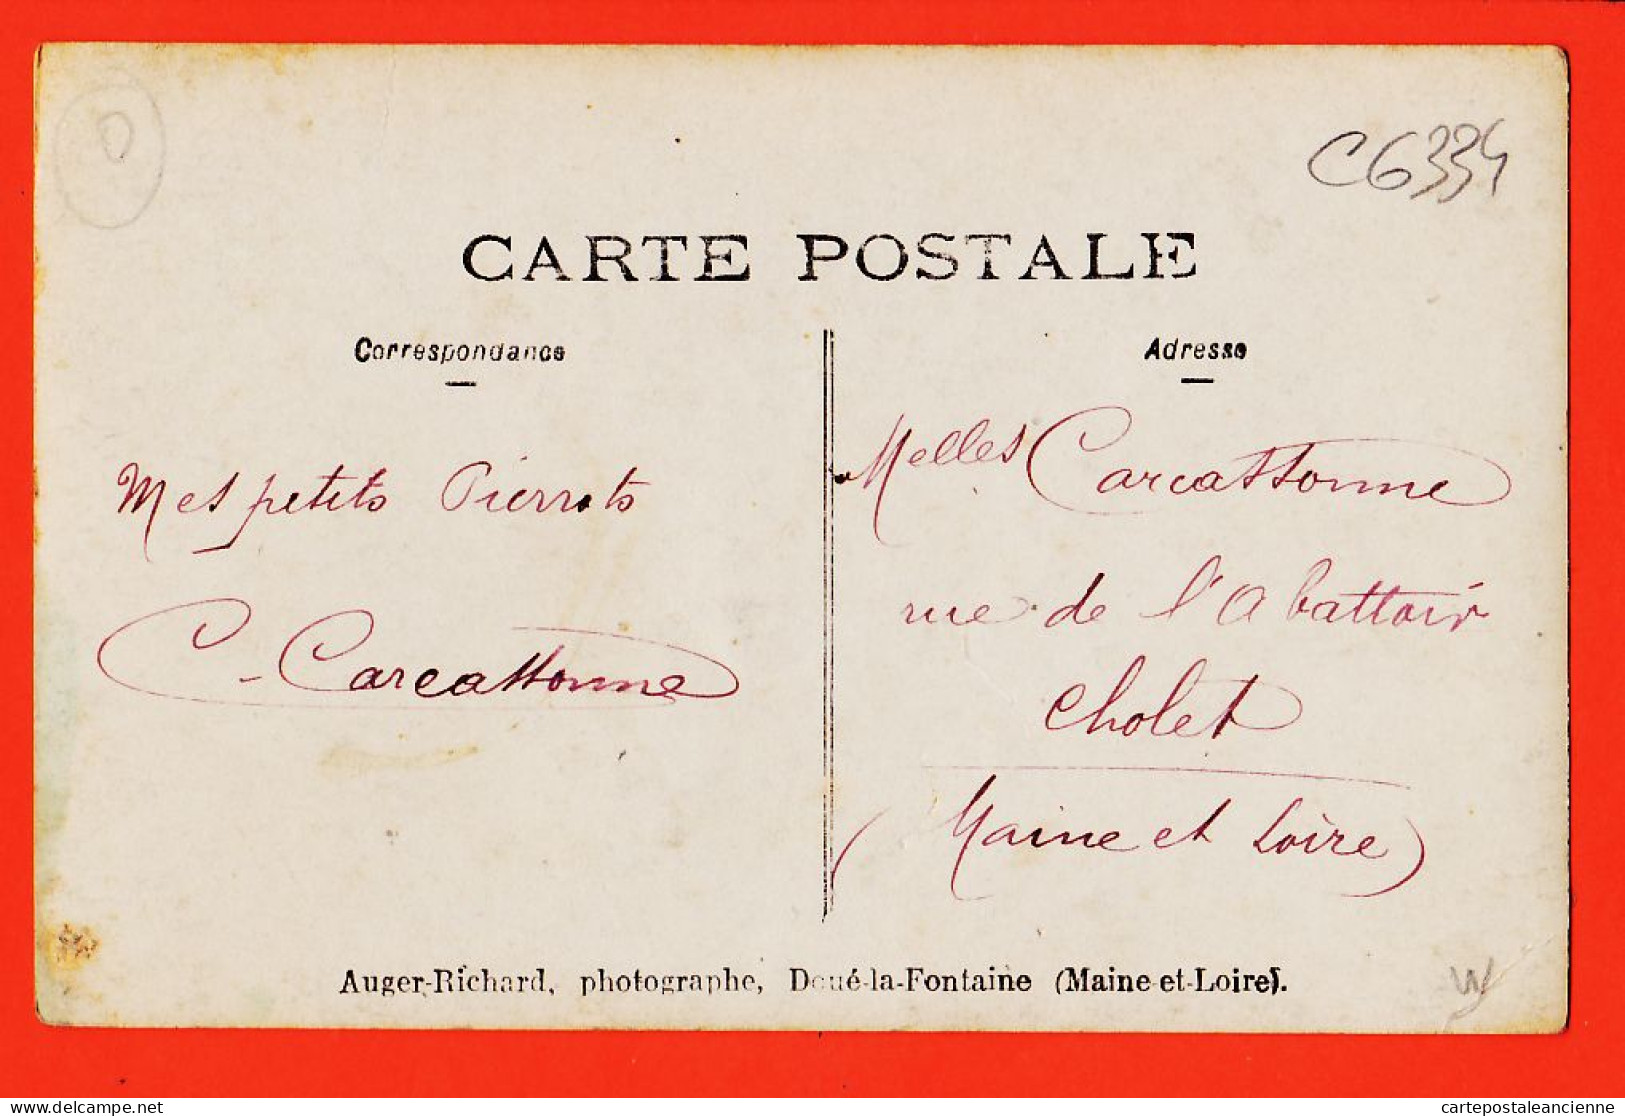 C6334
CARTE POSTALE
Correspondance
Mes petits Pierrots
C. Carcassonne
Adresse
Melles Carcassonne
rue de l'Abattoir
Cholet
(Maine et Loire)
Auger-Richard, photographe, Doué-la-Fontaine (Maine-et-Loire).
delcampe.net
cartepostaleancienne